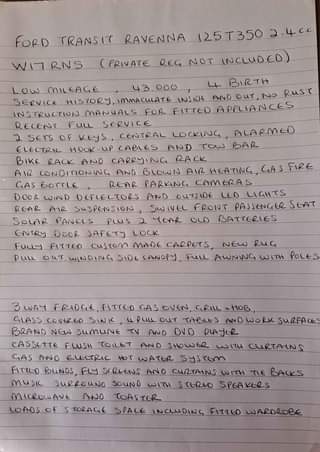 FORD TRANSIT RAVENNA 125T350 2.4cc
W17RNS (PRIVATE REG NOT INCLUDED)
LOW MILEAGE, 43.000, 4 BIRTH
SERVICE HISTORY, IMMACULATE INSIDE AND OUT, NO RUST
INSTRUCTION MANUALS FOR FITTED APPLIANCES
RECENT FULL SERVICE
2 SETS OF KEYS, CENTRAL LOCKING, ALARMED
ELECTRIC HOOK-UP CABLES AND TOW BAR
BIKE RACK AND CARRYING RACK
AIR CONDITIONING AND BLOWN AIR HEATING, GAS FIRE
GAS BOTTLE, REAR PARKING CAMERAS
DOOR WIND DEFLECTORS AND OUTSIDE LED LIGHTS
REAR AIR SUSPENSION, SWIVEL FRONT PASSENGER SEAT
SOLAR PANELS PLUS 2 YEAR OLD BATTERIES
ENTRY DOOR SAFETY LOCK
FULLY FITTED CUSTOM MADE CARPETS, NEW RUG
PULL OUT WINDING SIDE CANOPY, FULL AWNING WITH POLES
3 WAY FRIDGE, FITTED GAS OVEN, GRILL + HOB,
GLASS COVERED SINK, 4 PULL OUT TABLES AND WORK SURFACES
BRAND NEW SLIMLINE TV AND DVD PLAYER
CASSETTE FLUSH TOILET AND SHOWER WITH CURTAINS
GAS AND ELECTRIC HOT WATER SYSTEM
FITTED BLINDS, FLY SCREENS AND CURTAINS WITH TIE BACKS
MUSIC SURROUND SOUND WITH STEREO SPEAKERS
MICROWAVE AND TOASTER
LOADS OF STORAGE SPACE INCLUDING FITTED WARDROBE